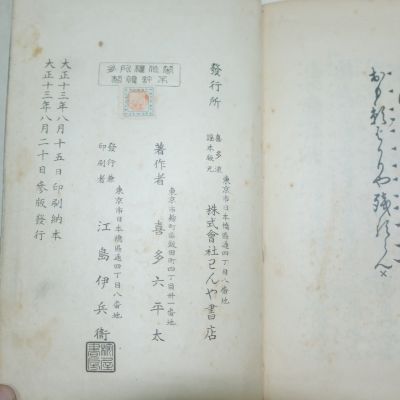 發行所
喜多流
謠本版元
東京市日本橋區通四丁目八番地
株式會社わんや書店
東京市麴町區飯田町四丁目卅一番地
著作者 喜多六平太
東京市日本橋區通四丁目八番地
發行兼
印刷者 江島伊兵衞
大正十三年八月十五日印刷納本
大正十三年八月二十日參版發行